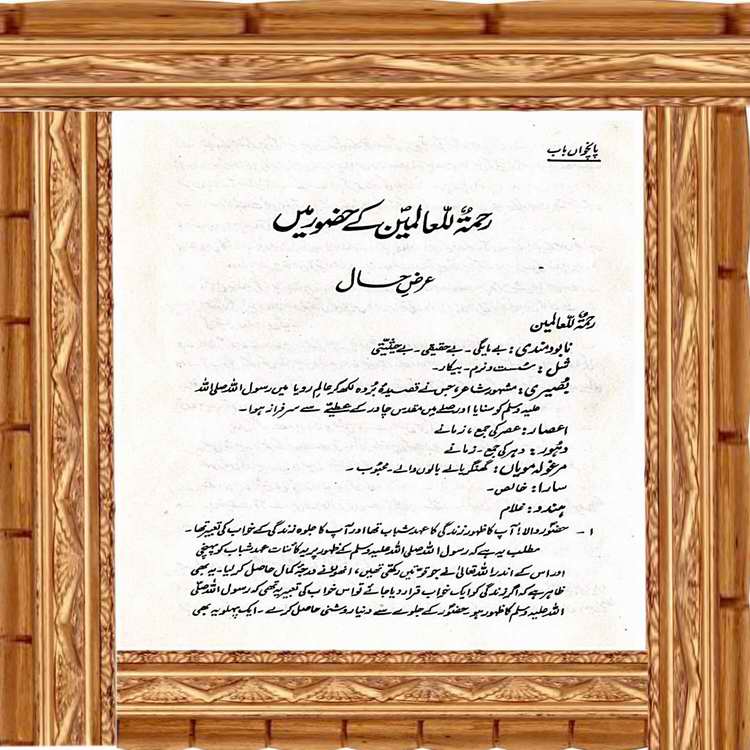 پانچواں باب
رحمۃٌ للّعالمینؐ کے حضور میں
عرضِ حال
رحمۃٌ للّعالمین
نابودمندی: بے مایگی۔ بے حقیقی۔ بے حیثیّتی
شل: سُست و نرم۔ بیکار۔
بُصیری: مشہور شاعر، جس نے قصیدۂ بُردہ لکھ کر عالمِ رویا میں رسول اللہ صلی اللہ
علیہ وسلم کو سنایا اور صلے میں مقدس چادر کے عطیّے سے سرفراز ہوا۔
اعصار: عصر کی جمع، زمانے
دہور: دہر کی جمع۔ زمانے
مرغولہ مویاں: گھنگریالے بالوں والے۔ محبوب۔
سارا: خالص۔
ہندو: غلام
۱ ۔ حضورِ والا! آپ کا ظہور زندگی کا عہدِ شباب تھا اور آپ کا جلوہ زندگی کے خواب کی تعبیر تھا۔
مطلب یہ ہے کہ رسول اللہ صلی اللہ علیہ وسلم کے ظہور پر یہ کائنات عہدِ شباب کو پہنچی
اور اس کے اندر اللہ تعالیٰ نے جو قوتیں رکھی تھیں، انھوں نے درجۂ کمال حاصل کر لیا۔ یہ بھی
ظاہر ہے کہ اگر زندگی کو ایک خواب قرار دیا جائے تو اس خواب کی تعبیر یہ تھی کہ رسول اللہ صلّی
اللہ علیہ وسلم کا ظہور ہو، حضورؐ کے جلوے سے دنیا روشنی حاصل کرے۔ ایک پہلو یہ بھی